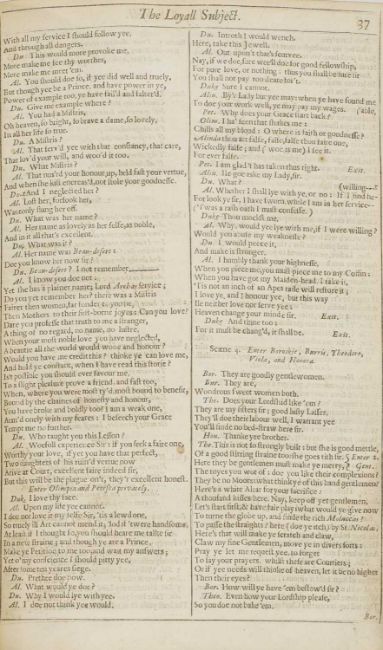 The Loyall Subject.
37
With all my service I should follow yee,
And through all dangers.
Du. This would more provoke me,
More make me see thy worthes,
More make me meet 'em.
Al. You should doe so, if yee did well and truely,
But though yee be a Prince, and have power in yee,
Power of example too, yee have fail'd and falter'd.
Du. Give me example where?
Al. You had a Mistris,
Oh heaven, so bright, so brave a dame, so lovely,
In all her life so true.
Du. A Mistris?
Al. That serv'd yee with that constancy, that care,
That lov'd your will, and woo'd it too.
Du. What Mistris?
Al. That nurs'd your honour up, held fast your vertue,
And when she kist encreas'd, not stole your goodnesse.
Du. And I neglected her?
Al. Lost her, forsook her,
Wantonly flung her off.
Du. What was her name?
Al. Her name as lovely as her selfe, as noble,
And in it all that's excellent.
Du. What was it?
Al. Her name was Beau-desert:
Doe you know her now sir?
Du. Beau-desert? I not remember
Al. I know you doe not;
Yet she has a plainer name; Lord Archas service;
Do you yet remember her? there was a Mistris
Fairer then women, far fonder to you sir,
Then Mothers to their first-borne joyes: Can you love?
Dare you professe that truth to me a stranger,
A thing of no regard, no name, no lustre,
When your most noble love you have neglected,
A beautie all the world would wooe and honour?
Would you have me credit this? thinke ye can love me,
And hold ye constant, when I have read this storie?
Ist possible you should ever favour me,
To a slight pleasure prove a friend, and fast too,
When, where you were most ty'd, most bound to benefit,
Bound by the chaines of honestly and honour,
You have broke and boldly too? I am a weak one,
Arm'd onely with my feares: I beseech your Grace
Tempt me no further.
Du. Who taught you this Lesson?
Al. Woefull experience Sir: if you seek a faire one,
Worthy your love, if yet you have that perfect,
Two daughters of his ruin'd vertue now
Arive at Court, excellent faire indeed sir,
But this will be the plague on't, they're excellent honest.
Enter Olimpia and Petesca privately.
Duk. I love thy face.
Al. Upon my life yee cannot.
I doe not love it my selfe Sir, 'tis a lewd one,
So truely ill Art cannot mend it; 'lod if 'twere handsome,
At least if I thought so, you should heare me talke sir
In a new straine; and though ye are a Prince,
Make ye Petition to me too, and wait my answers;
Yet o' my conscience I should pitty yee,
After some ten yeares siege.
Du. Prethee doe now.
Al. What would ye doe?
Du. Why I would lye with yee.
Al. I doe not think you would.
Du. Introth I would wench.
Here, take this Jewell.
Al. Out upon't that's scurvee.
Nay, if we doe, sure wee'll doe for good fellowship,
For pure love, or nothing: thus you shall be sure sir
You shall not pay too deare for't.
Duke Sure I cannot.
Alin. By'r Lady but yee may: when ye have found me able,
To doe your work well, ye may pay my wages.
Pet. Why does your Grace start back?
Olim. I ha' seen that shakes me:
Chills all my blood: O where is faith or goodnesse?
Alinda thou art false, false, false thou faire one,
Wickedly false; and (woe is me) I see it.
For ever false.
Exit.
Pet. I am glad 't has taken thus right.
Alin. Ile goe aske my Lady, sir.
Du. What?
Al. Whether I shall lye with ye, or no: If I find her willing—
For looke ye sir, I have sworn, while I am in her service—
('Twas a rash oath I must confesse.)
Duke Thou mockst me.
Al. Why, would yee lye with me, if I were willing?
Would you abuse my weaknesse?
Du. I would peece it,
And make it stronger.
Al. I humbly thank your highnesse,
When you piece me, you must piece me to my Coffin:
When you have got my Maiden-head, I take it,
'Tis not an inch of an Apes taile will restore it;
I love ye, and I honour yee, but this way
Ile neither love nor serve yee:
Heaven change your minde sir.
Exit.
Duke And thine too:
For it must be chang'd, it shall be.
Exit.
Scene 4. Enter Boroskie, Burris, Theodore,
Viola, and Honora.
Bor. They are goodly gentlewomen.
Bur. They are,
Wondrous sweet women both.
Tho. Does your Lordship like 'em?
They are my sisters sir; good lusty Lasses,
They'll doe their labour well, I warrant yee
You'll finde no bed-straw here sir.
Hon. Thanke yee brother.
Tho. This is not so strongly built: but she is good mettle,
Of a good stirring straine too: she goes tith sir.
Enter 2. Gent.
Here they be gentlemen must make ye merry,
The toyes you wot of: doe you like their complexions?
They be no Moores: what think ye of this hand gentlemen?
Here's a white Altar for your sacrifice:
A thousand kisses here. Nay, keep off yet gentlemen,
Let's start first, & have faire play: what would ye give now
To turne the globe up, and finde the rich Moluccas?
To passe the straights? here (doe ye itch) by St. Nicholas,
Here's that will make ye scratch and claw,
Claw my fine Gentlemen, move ye in divers sorts:
Pray ye let me request yee, to forget
To say your prayers, whilst these are Courtiers;
Or if yee needs will thinke of heaven, let it be no higher
Then their eyes?
Bor. How will ye have 'em bestow'd sir?
Theo. Even how your Lordship please,
So you doe not bake 'em.
Bor.